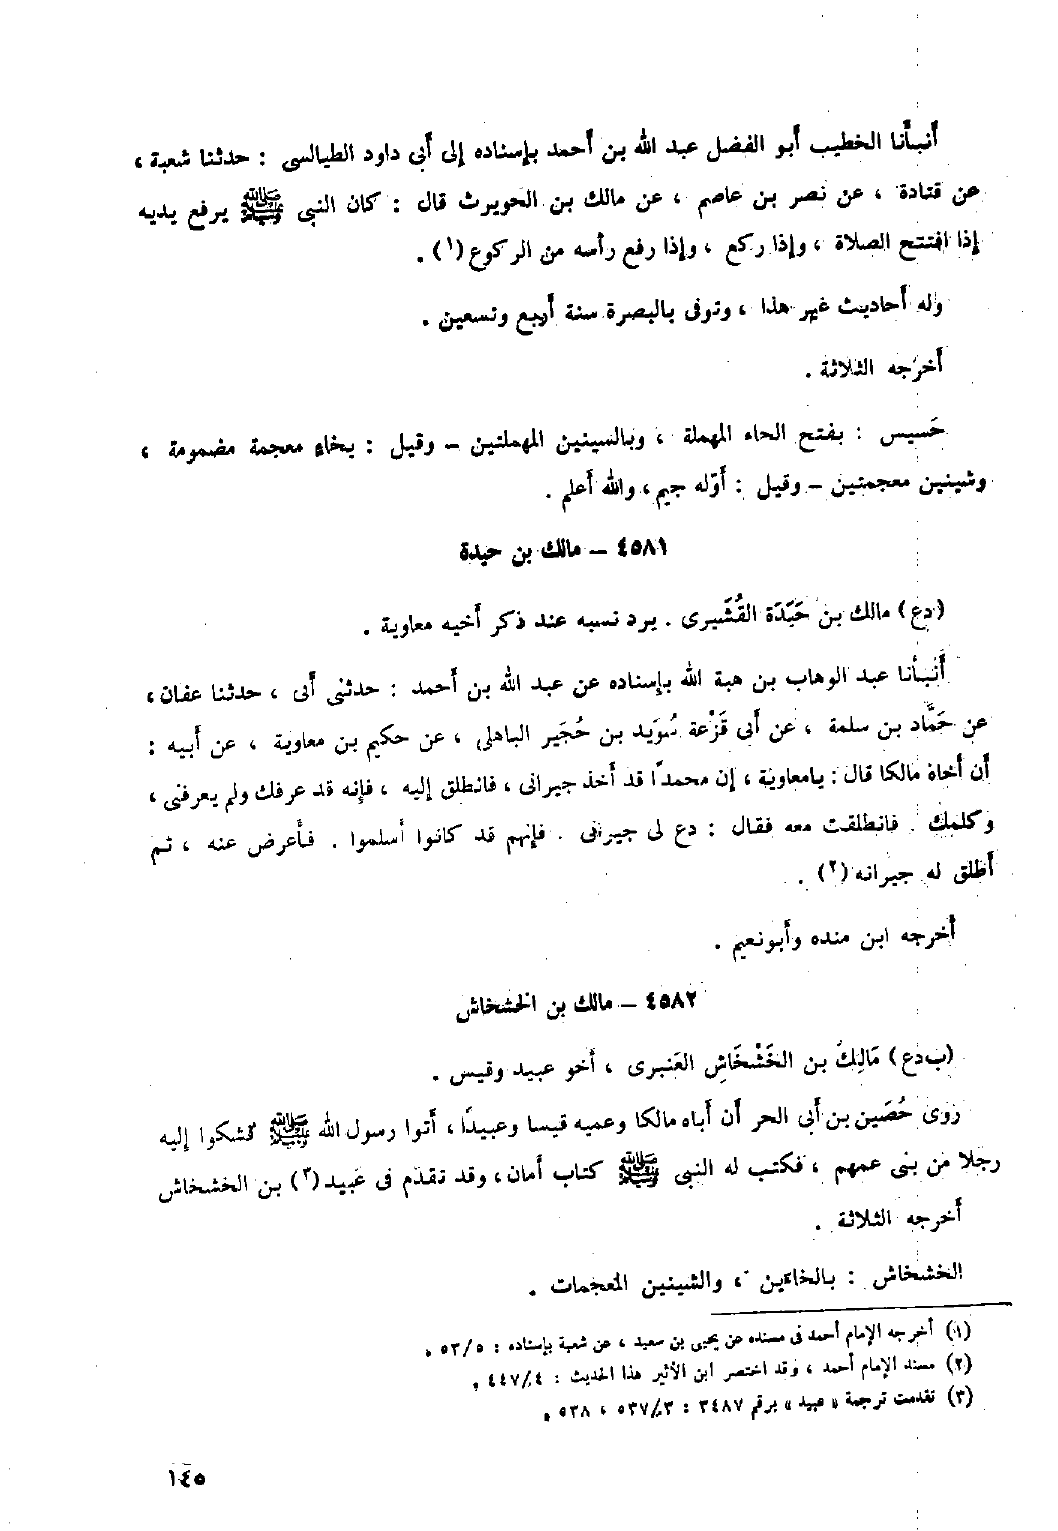 أنبأنا الخطيب أبو الفضل عبد الله بن أحمد بإسناده إلى أبى داود الطيالسى : حدثنا شعبة ،
عن قتادة ، عن نصر بن عاصم ، عن مالك بن الحويرث قال : كان النبى ﷺ يرفع يديه
إذا افتتح الصلاة ، وإذا ركع ، وإذا رفع رأسه من الركوع (١) .
وله أحاديث غير هذا ، وتوفى بالبصرة سنة أربع وتسعين .
أخرجه الثلاثة .
حَسيس : بفتح الحاء المهملة ، وبالسينين المهملتين – وقيل : بخاءٍ معجمة مضمومة ،
وشينين معجمتين – وقيل : أوّله جيم ، والله أعلم .
٤٥٨١ – مالك بن حيدة
(دع) مالك بن حَيَدَة القُشَيرى . يرد نسبه عند ذكر أخيه معاوية .
أنبأنا عبد الوهاب بن هبة الله بإسناده عن عبد الله بن أحمد : حدثنى أبى ، حدثنا عفان ،
عن حَمَّاد بن سلمة ، عن أبى قَزْعة سُوَيد بن حُجَير الباهلى ، عن حكيم بن معاوية ، عن أبيه :
أن أخاه مالكا قال : يا معاوية ، إن محمدًا قد أخذ جيرانى ، فانطلق إليه ، فإنه قد عرفك ولم يعرفنى ،
وكلمك . فانطلقت معه فقال : دع لى جيرانى . فإنهم قد كانوا أسلموا . فأعرض عنه ، ثم
أطلق له جيرانه (٢) .
أخرجه ابن منده وأبو نعيم .
٤٥٨٢ – مالك بن الخشخاش
(ب دع) مَالِك بن الخَشْخَاشِ العَنبرى ، أخو عبيد وقيس .
روى حُصَين بن أبى الحر أن أباه مالكا وعميه قيسا وعبيدًا ، أتوا رسول الله ﷺ فشكوا إليه
رجلا من بنى عمهم ، فكتب له النبى ﷺ كتاب أمان ، وقد تقدّم فى عَبيد (٣) بن الخشخاش
أخرجه الثلاثة .
الخشخاش : بالخاءين ، والشينين المعجمات .
(١) أخرجه الإمام أحمد فى مسنده عن يحيى بن سعيد ، عن شعبة بإسناده : ٥/٥٣ .
(٢) مسند الإمام أحمد ، وقد اختصر ابن الأثير هذا الحديث : ٤/٤٤٧ .
(٣) تقدمت ترجمة « عبيد » برقم ٣٤٨٧ : ٣/٥٣٧ ، ٥٣٨ .
١٤٥